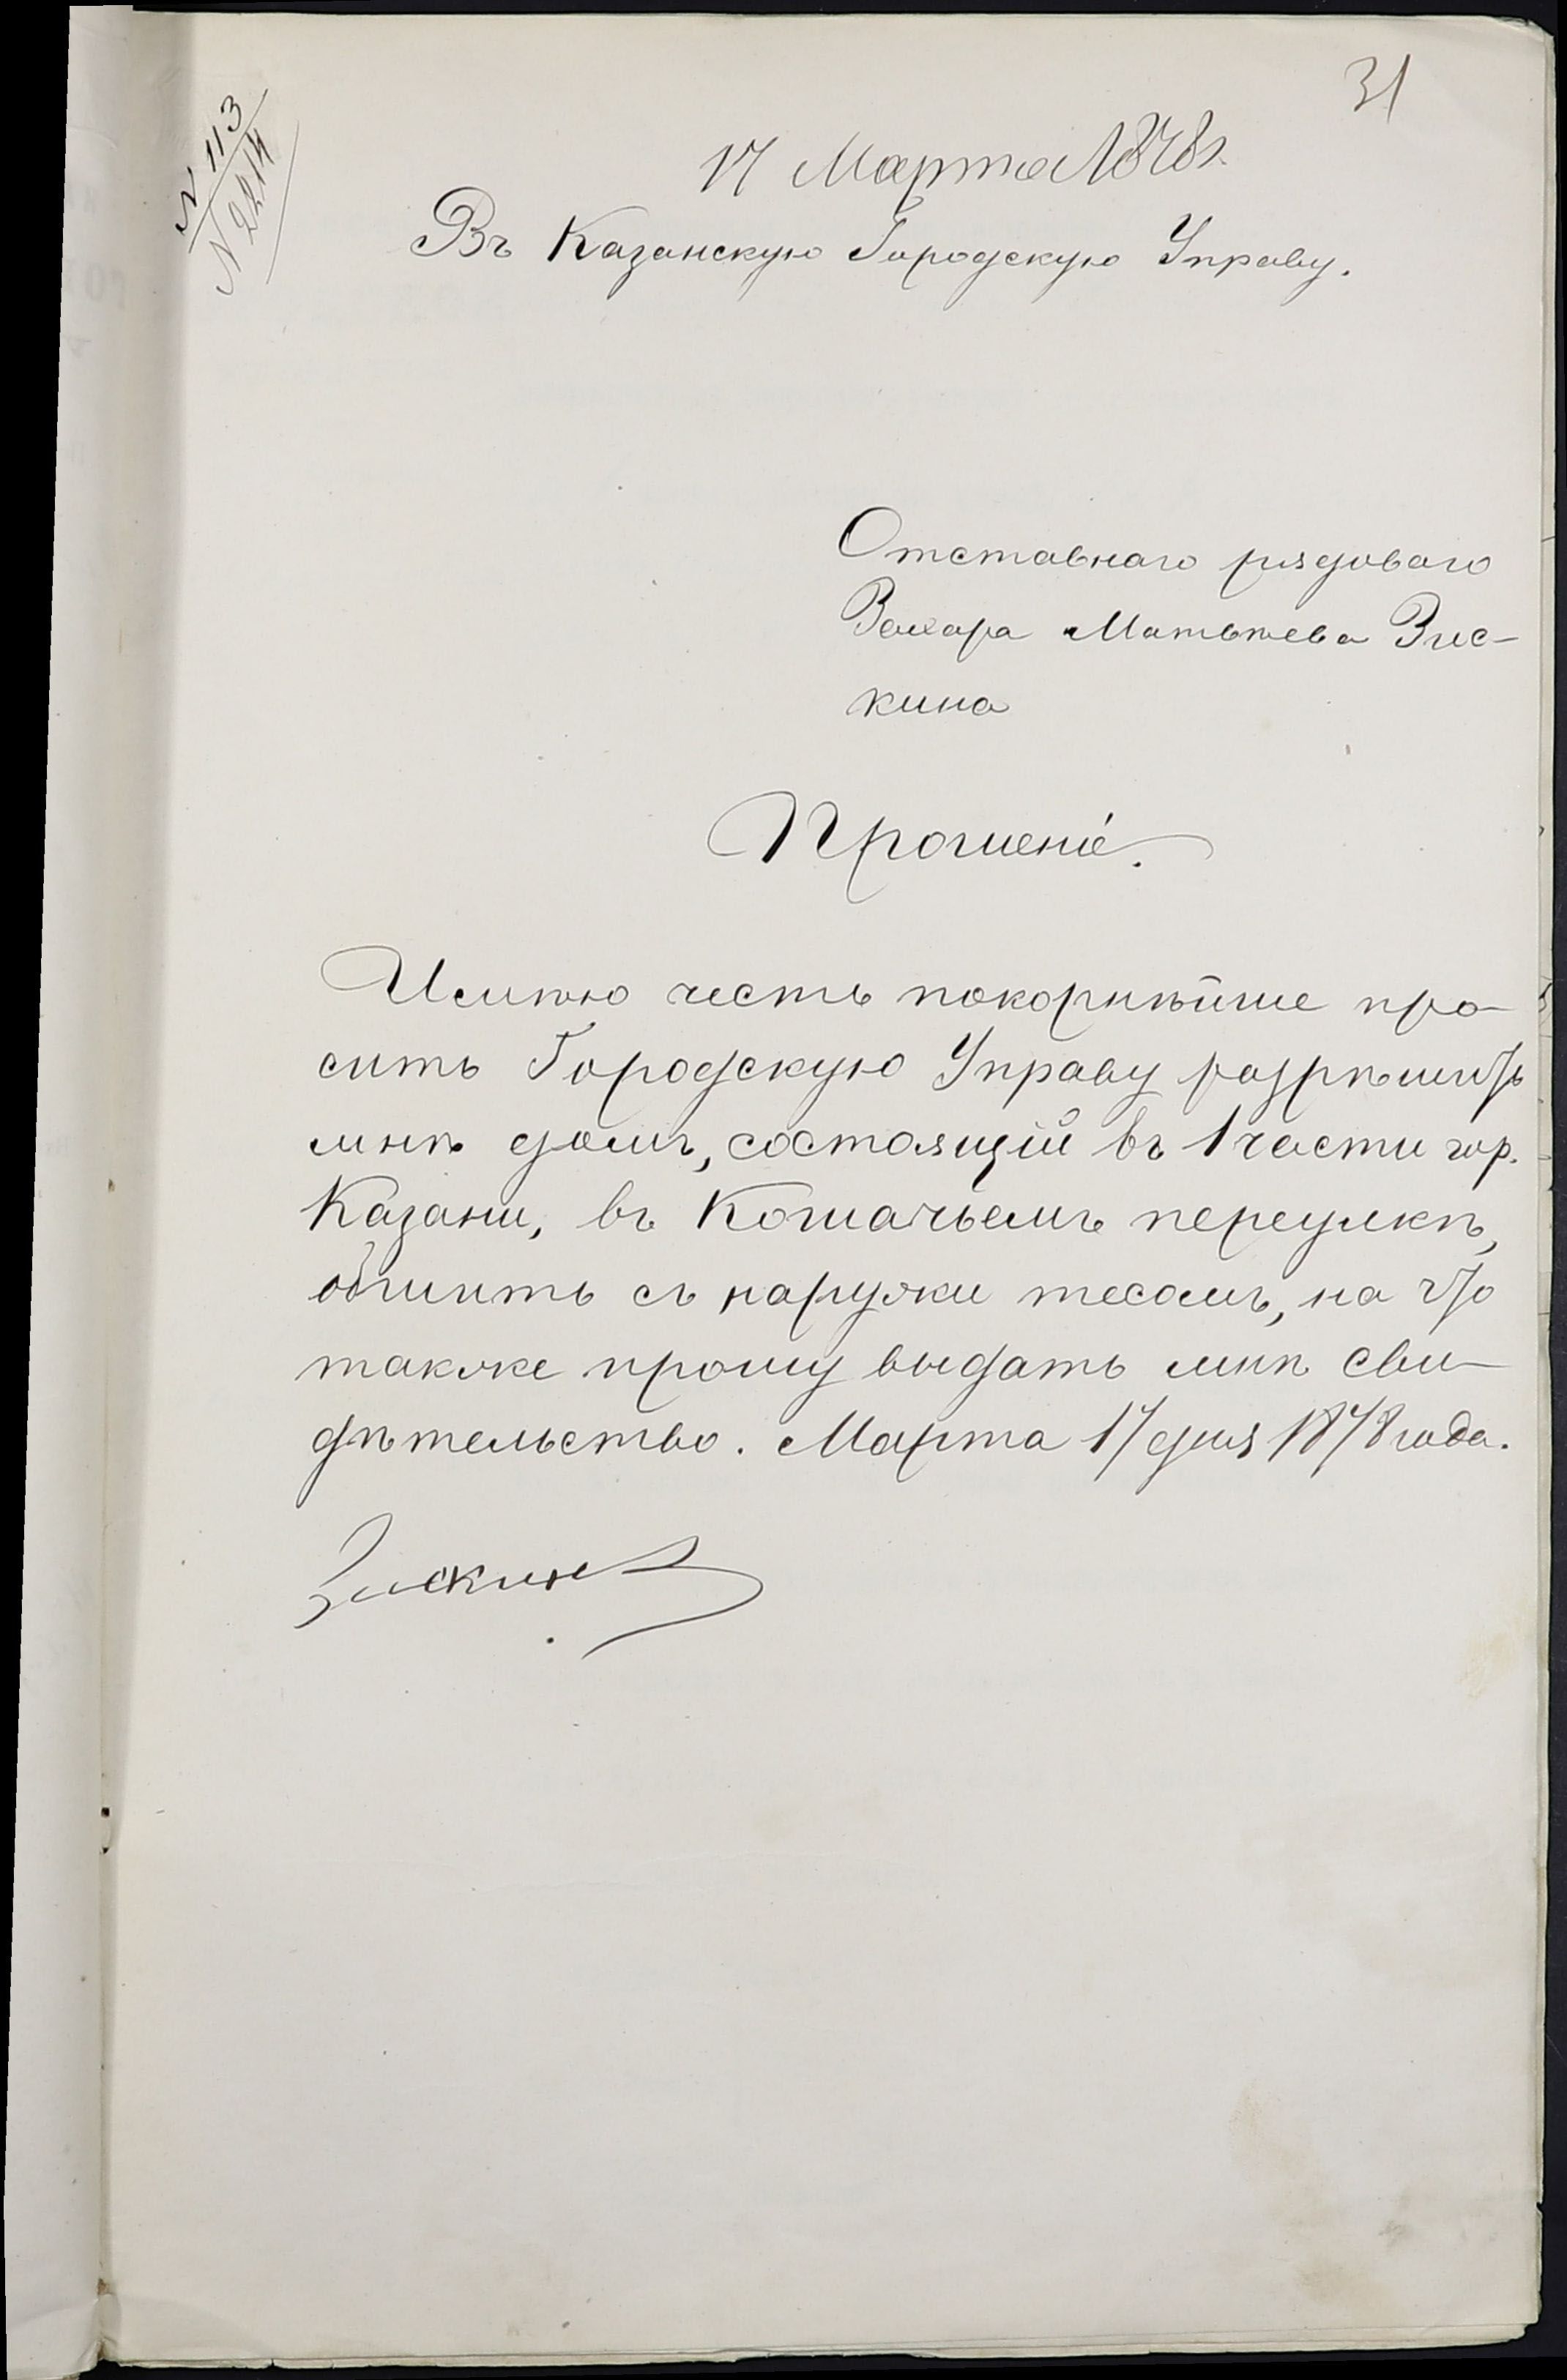 31
N 113
N 2214
17 Марта 1878 г.
Въ Казанскую Городскую Управу.
Отставнаго рядоваго
Захара Матвѣева Зис-
кина
Прошеніе.
Имѣю честь покорнѣйше про-
сить Городскую Управу разрѣшить
мнѣ домъ, состоящій въ 1 части гор.
Казани, въ Кошачьемъ переулкѣ,
обшить съ наружи тесомъ, на что
также прошу выдать мнѣ сви-
дѣтельство. Марта 17 дня 1878 года.
Зискинъ